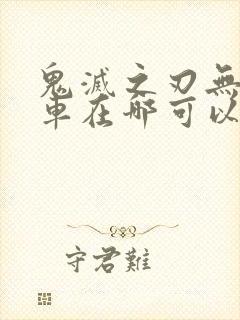 鬼滅之刃無
車在哪可以
守君難